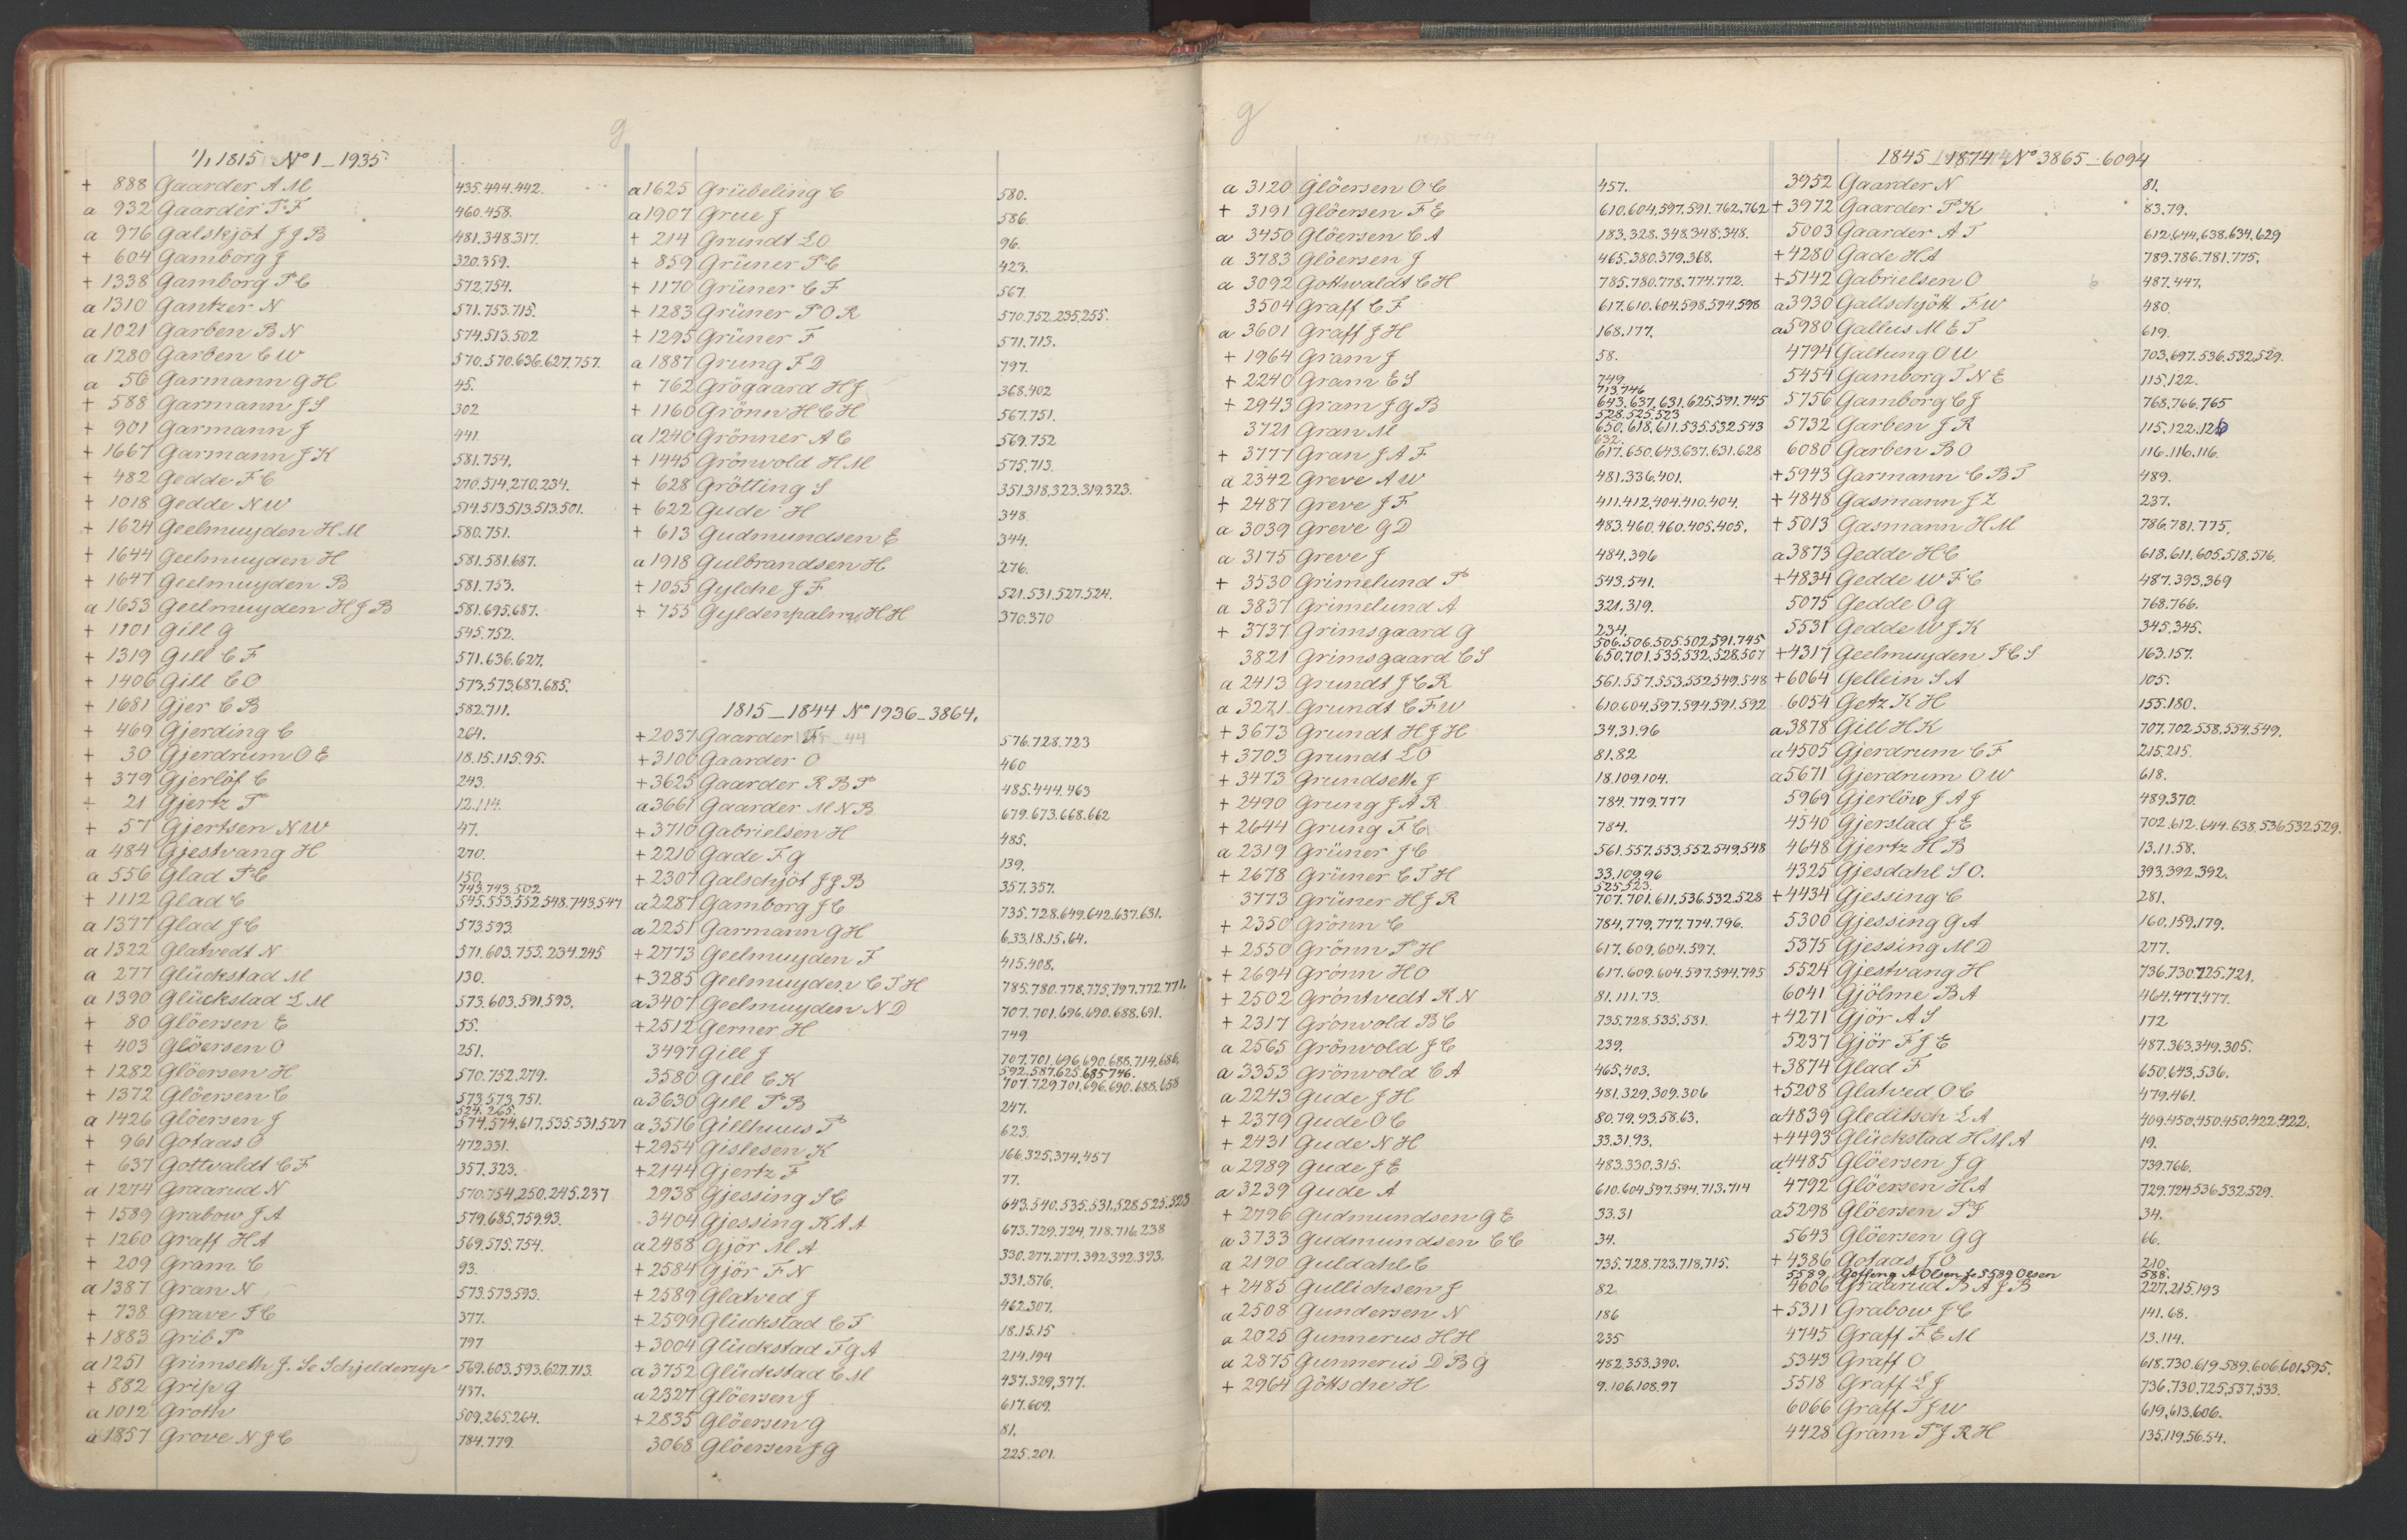 g
1/1 1815 No 1_1935
+ 888 Gaarder A M 435.444.442.
a 932 Gaarder P F 460.458.
a 976 Galskjöt J J B 481.348.317.
+ 604 Gamborg J 320.359.
+ 1338 Gamborg P C 572.754.
a 1310 Gantzer N 571.753.715.
a 1021 Garben B N 574.513.502
a 1280 Garben C W 570.570.636.627.757.
a 56 Garmann G H 45.
+ 588 Garmann J S 302
+ 901 Garmann J 441.
+ 1667 Garmann J K 581.754.
+ 482 Gedde F C 270.514.270.234.
+ 1018 Gedde N W 514.513.513.513.501.
+ 1624 Geelmuyden H M 580.751.
+ 1644 Geelmuyden H 581.581.687.
+ 1647 Geelmuyden B 581.753.
a 1653 Geelmuyden H J B 581.695.687.
+ 1101 Gill G 545.752.
+ 1319 Gill C F 571.636.627.
+ 1406 Gill C O 573.573.687.685.
+ 1681 Gjer C B 582.711.
+ 469 Gjerding C 264.
+ 30 Gjerdrum O E 18.15.115.95.
+ 379 Gjerlöf C 243.
+ 21 Gjertz P 12.114.
+ 57 Gjertsen N W 47.
a 484 Gjestvang H 270.
a 556 Glad P C 150.
743.743.502
+ 1112 Glad C 545.553.552.548.743.547
a 1377 Glad J C 573.593
a 1322 Glatvedt N 571.603.755.234.245
a 277 Glückstad M 130.
a 1390 Glückstad L M 573.603.591.593.
+ 80 Glöersen E 55.
+ 403 Glöersen O 251.
+ 1282 Glöersen H 570.752.279.
+ 1372 Glöersen C 573.573.751.
524.265.
a 1426 Glöersen J 574.574.617.535.531.527
+ 961 Gotaas O 472.331.
+ 637 Gottvaldt C F 357.323.
a 1274 Graarud N 570.754.250.245.237
+ 1589 Grabow J A 579.685.759.93.
+ 1260 Graff H A 569.575.754.
+ 209 Gram C 93.
a 1387 Gran N 573.573.593.
+ 738 Grave J C 377.
+ 1883 Grib P 797
a 1251 Grimseth J. Se Schjelderup 569.603.593.627.713.
+ 882 Grip G 437.
a 1012 Groth 509.265.264.
a 1857 Grove N J C 784.779
a 1625 Grübeling C 580.
a 1907 Grue J 586.
+ 214 Grundt L O 96.
+ 859 Grüner P C 423.
+ 1170 Grüner C F 567.
+ 1283 Grüner P O R 570.752.235.255.
+ 1295 Grüner F 571.713.
a 1887 Grung F D 797.
+ 762 Grögaard H J 368.402
+ 1160 Grönn H C H 567.751.
a 1240 Grönner A C 569.752
+ 1445 Grönvold H M 575.713.
+ 628 Grötting S 351.318.323.319.323.
+ 622 Gude H 348.
+ 613 Gudmundsen E 344.
a 1918 Gulbrandsen H 276.
+ 1055 Gylche J F 521.531.527.524.
+ 755 Gyldenpalm H H 370.370
1815_1844 No 1936_3864.
+ 2037 Gaarder F 576.728.723
+ 3100 Gaarder O 460
+ 3625 Gaarder R B P 485.444.463
a 3661 Gaarder M N B 679.673.668.662
+ 3710 Gabrielsen H 485.
+ 2210 Gade F G 139.
+ 2307 Galschjöt J J B 357.357.
a 2287 Gamborg J C 735.728.649.642.637.631.
a 2251 Garmann G H 6.33.18.15.64.
+ 2773 Geelmuyden F 415.408.
+ 3285 Geelmuyden C T H 785.780.778.775.797.772.771.
a 3407 Geelmuyden N D 707.701.696.690.688.691.
+ 2512 Gerner H 749.
3497 Gill J 707.701.696.690.688.714.686.
592.587.625.685.746.
3580 Gill C K 707.729.701.696.690.688.658
a 3630 Gill P B 247.
a 3516 Gillhuus P 623.
+ 2954 Gislesen K 166.325.374.457
+ 2144 Gjertz F 77.
2938 Gjessing S C 643.540.535.531.528.525.523
3404 Gjessing K A A 673.729.724.718.716.238
a 2488 Gjör M A 330.277.277.392.392.393.
+ 2584 Gjör F N 331.376.
+ 2589 Glatved J 462.307.
+ 2599 Glückstad C F 18.15.15
+ 3004 Glückstad F G A 214.194
a 3752 Glückstad C M 437.329.377.
a 2327 Glöersen J 617.609.
+ 2835 Glöersen G 81.
3068 Glöersen J G 225.201.
g
a 3120 Glöersen O C 457.
+ 3191 Glöersen F E 610.604.597.591.762.762
a 3450 Glöersen C A 183.328.348.348.348.
a 3783 Glöersen J 465.380.379.368.
a 3092 Gottwaldt C H 785.780.778.774.772.
3504 Graff C F 617.610.604.598.594.598
a 3601 Graff J H 168.177.
+ 1964 Gram J 58.
+ 2240 Gram E S 749.
713.746
+ 2943 Gram J G B 643.637.631.625.591.745
528.525.523
3721 Gran M 650.618.611.535.532.543
632.
+ 3777 Gran J A F 617.650.643.637.631.628
a 2342 Greve A W 481.336.401.
+ 2487 Greve J F 411.412.404.410.404.
a 3039 Greve G D 483.460.460.405.405.
a 3175 Greve J 484.396
+ 3530 Grimelund P 543.541.
a 3837 Grimelund A 321.319.
+ 3737 Grimsgaard G 234.
506.506.505.502.591.745
3821 Grimsgaard C S 650.701.535.532.528.507
a 2413 Grundt J C R 561.557.553.552.549.548
a 3271 Grundt C F W 610.604.597.594.591.592
+ 3673 Grundt H J H 34.31.96
+ 3703 Grundt L O 81.82
+ 3473 Grundseth J 18.109.104.
+ 2490 Grung J A R 784.779.777
+ 2644 Grung F C 784.
a 2319 Grüner J C 561.557.553.552.549.548
+ 2678 Grüner C T H 33.109.96
525.523.
3773 Grüner H J R 707.701.611.536.532.528
+ 2350 Grönn C 784.779.777.774.796.
+ 2550 Grönn P H 617.609.604.597.
+ 2694 Grönn H O 617.609.604.597.594.745
+ 2502 Gröntvedt R N 81.111.73.
+ 2317 Grönvold B C 735.728.535.531.
a 2565 Grönvold J C 239.
a 3353 Grönvold C A 465.403.
a 2243 Gude J H 481.329.309.306
+ 2379 Gude O C 80.79.93.58.63.
+ 2431 Gude N H 33.31.93.
a 2989 Gude J E 483.330.315.
a 3239 Gude A 610.604.597.594.713.714
+ 2796 Gudmundsen G E 33.31
a 3733 Gudmundsen C C 34.
a 2190 Guldahl C 735.728.723.718.715.
+ 2485 Gullichsen J 82.
a 2508 Gundersen N 186
a 2025 Gunnerus H H 235
a 2875 Gunnerus D B G 482.353.390.
+ 2964 Göttsche H 9.106.108.97
1845_1874 No 3865_6094
3952 Gaarder N 81.
+ 3972 Gaarder P K 83.79.
5003 Gaarder A T 612.644.638.634.629
+ 4280 Gade H A 789.786.781.775.
+ 5142 Gabrielsen O 487.447.
a 3930 Gallschjött F W 480.
a 5980 Gallus M E T 619.
4794 Galtung O U 703.697.536.532.529.
5454 Gamborg T N E 115.122.
5756 Gamborg C J 768.766.765
5732 Garben J R 115.122.126
6080 Garben B O 116.116.116.
+ 5943 Garmann C B T 489.
+ 4848 Gasmann J Z 237.
+ 5013 Gasmann H M 786.781.775.
a 3873 Gedde H C 618.611.605.518.516.
+ 4834 Gedde W F C 487.393.369
5075 Gedde O G 768.766.
5531 Gedde W J K 345.345.
+ 4317 Geelmuyden J C S 163.157.
+ 6064 Gellein S A 105.
6054 Getz K H 155.180.
a 3878 Gill H K 707.702.558.554.549.
a 4505 Gjerdrum C F 215.215.
a 5671 Gjerdrum O W 618.
5969 Gjerlöw J A J 489.370.
4540 Gjerstad J E 702.612.644.638.536.532.529.
4648 Gjertz H B 13.11.58.
4325 Gjesdahl S O. 393.392.392.
+ 4434 Gjessing C 281.
5300 Gjessing G A 160.159.179.
5375 Gjessing M D 277.
5524 Gjestvang H 736.730.725.721.
6041 Gjölme B A 464.477.477.
+ 4271 Gjör A S 172
5237 Gjör F J E 487.363.349.305.
+ 3874 Glad F 650.643.536.
+ 5208 Glatved O C 479.461.
a 4839 Gleditsch L A 409.450.450.450.422.422.
+ 4493 Glückstad H M A 19.
a 4485 Glöersen J G 739.766.
4792 Glöersen H A 729.724.536.532.529.
a 5298 Glöersen P J 34.
5643 Glöersen G G 66.
+ 4386 Gotaas J O 210.
5589 Gotfeng A Olsen se 5589 Olsen 588.
4606 Graarud B A J B 227.215.193
+ 5311 Grabow J C 141.68.
4745 Graff F E M 13.114.
5343 Graff O 618.730.619.589.606.601.595.
5518 Graff L J 736.730.725.537.533.
6066 Graff T J W 619.613.606.
4428 Gram P J R H 135.119.56.54.